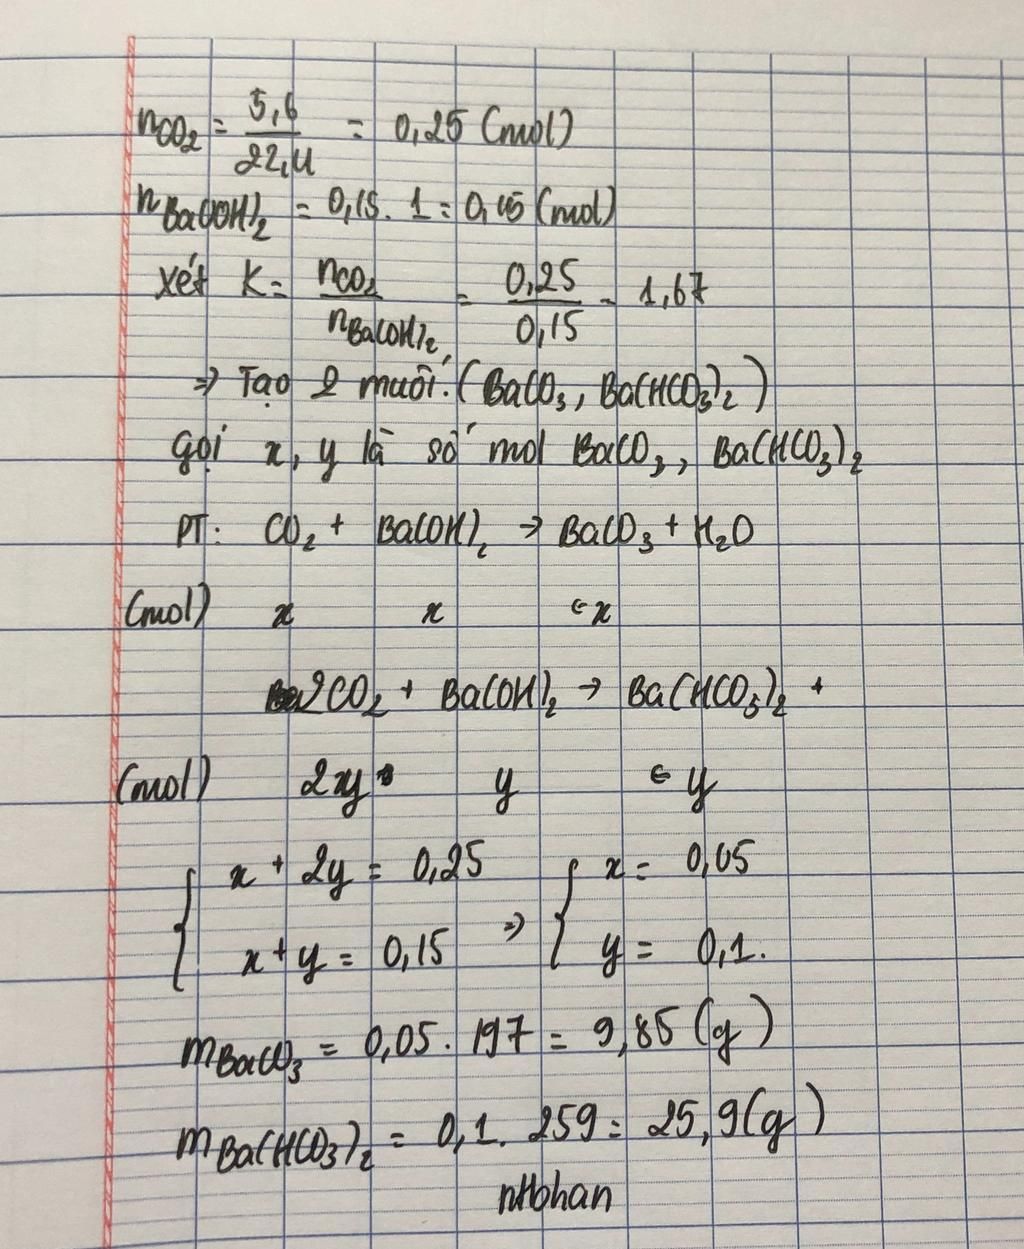 nCO2 = 5,6/22,4 = 0,25 (mol)
nBa(OH)2 = 0,15. 1 = 0,15 (mol)
xét K = nCO2/nBa(OH)2 = 0,25/0,15 = 1,67
=> Tạo 2 muối. (BaCO3, Ba(HCO3)2)
gọi x, y là số mol BaCO3, Ba(HCO3)2
PT: CO2 + Ba(OH)2 → BaCO3 + H2O
(mol) x x ← x
2CO2 + Ba(OH)2 → Ba(HCO3)2 +
(mol) 2y y ← y
{ x + 2y = 0,25 => { x = 0,05
x + y = 0,15 y = 0,1.
mBaCO3 = 0,05. 197 = 9,85 (g)
mBa(HCO3)2 = 0,1. 259 = 25,9 (g)